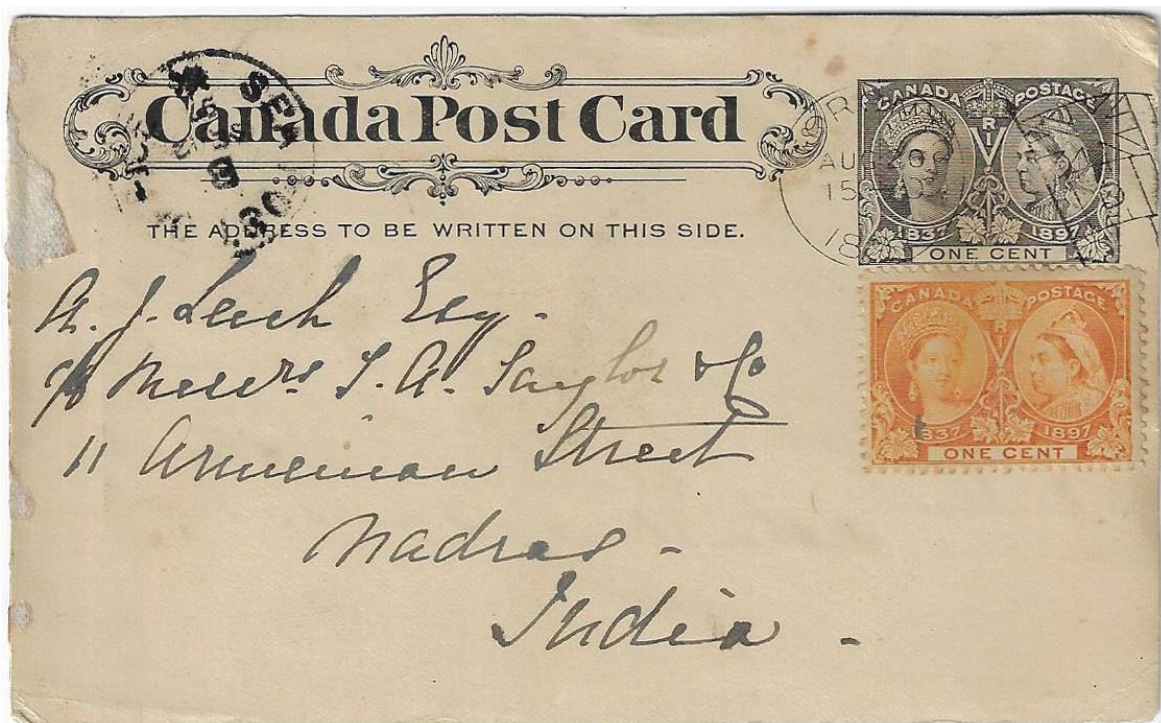 Canada Post Card
THE ADDRESS TO BE WRITTEN ON THIS SIDE.
CANADA POSTAGE
V R I
1837 1897
ONE CENT
AUG 20
15
CANADA POSTAGE
V R I
1837 1897
ONE CENT
SEA
A. J. Leech Esq -
c/o Messrs T. A. Taylor & Co
11 Armenian Street
Madras -
India -